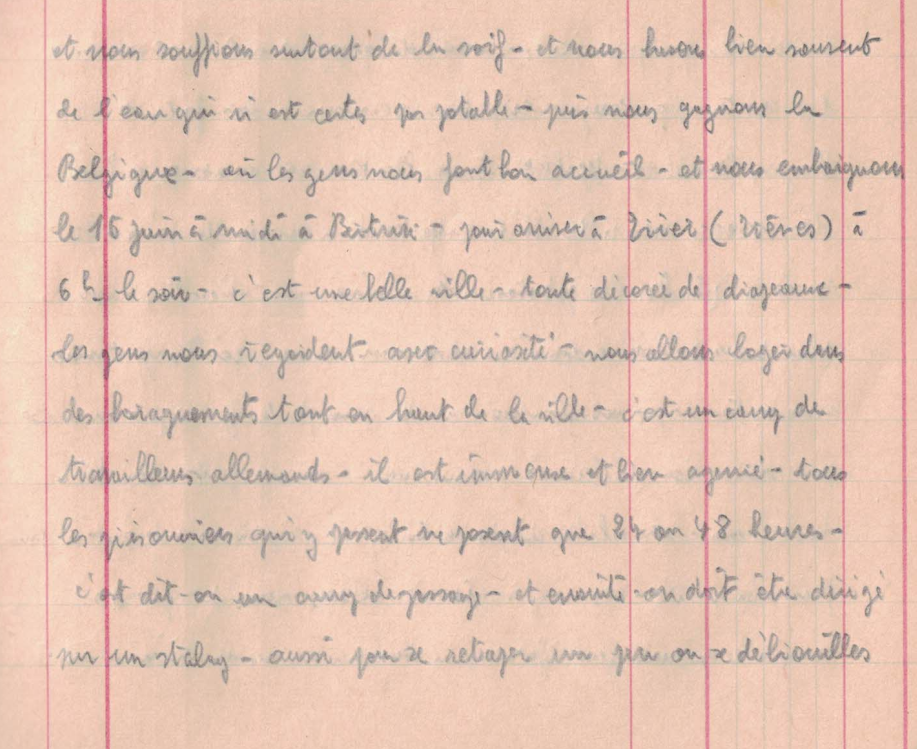 et nous souffrons surtout de la soif - et nous buvons bien souvent
de l'eau qui n'est certes pas potable - puis nous gagnons la
Belgique - où les gens nous font bon accueil - et nous embarquons
le 15 juin à midi à Bertrix - pour arriver à Trier (Trèves) à
6h le soir - c'est une belle ville - toute décorée de drapeaux -
les gens nous regardent avec curiosité - nous allons loger dans
des baraquements tout en haut de la ville - c'est un camp de
travailleurs allemands - il est immense et bien agencé - tous
les prisonniers qui y passent ne passent que 24 ou 48 heures -
c'est dit-on un camp de passage - et ensuite on doit être dirigé
sur un stalag - aussi pour se retaper un peu on se débrouilles